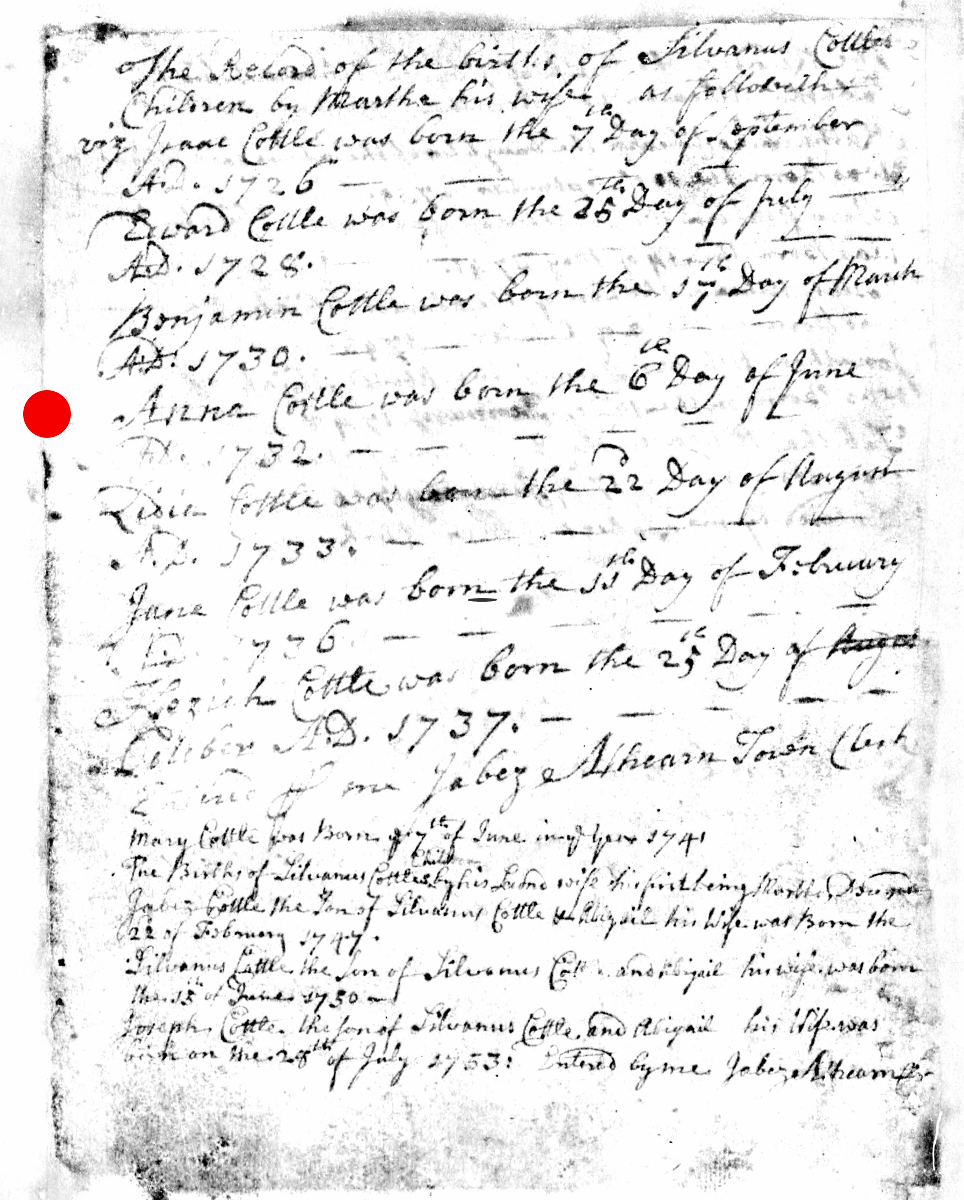 The Record of the births of Silvanus Cottles
Children by Martha his wife as followeth
viz Isaac Cottle was born the 7th Day of September
A.D. 1726
Edward Cottle was born the 25th Day of July
A.D. 1728.
Benjamin Cottle was born the 17th Day of March
A.D. 1730.
Anna Cottle was born the 6th Day of June
A.D. 1732.
Lidia Cottle was born the 22 Day of August
A.D. 1733.
Jane Cottle was born the 11th Day of February
A.D. 1736
Keziah Cottle was born the 25th Day of Augus
October A.D. 1737.
Entered me Jabez Athearn Town Clerk
Mary Cottle was Born ye 7th of June in ye year 1741
The Births of Silvanus Cottles Children by his second wife his first being Martha
Jabez Cottle the Son of Silvanus Cottle & Abigail his Wife was Born the
22 of February 1747.
Silvanus Cottle the Son of Silvanus Cottle and Abigail his wife was born
the 15th of June 1750
Joseph Cottle the son of Silvanus Cottle and Abigail his Wife was
born on the 28th of July 1753: Entered by me Jabez Athearn